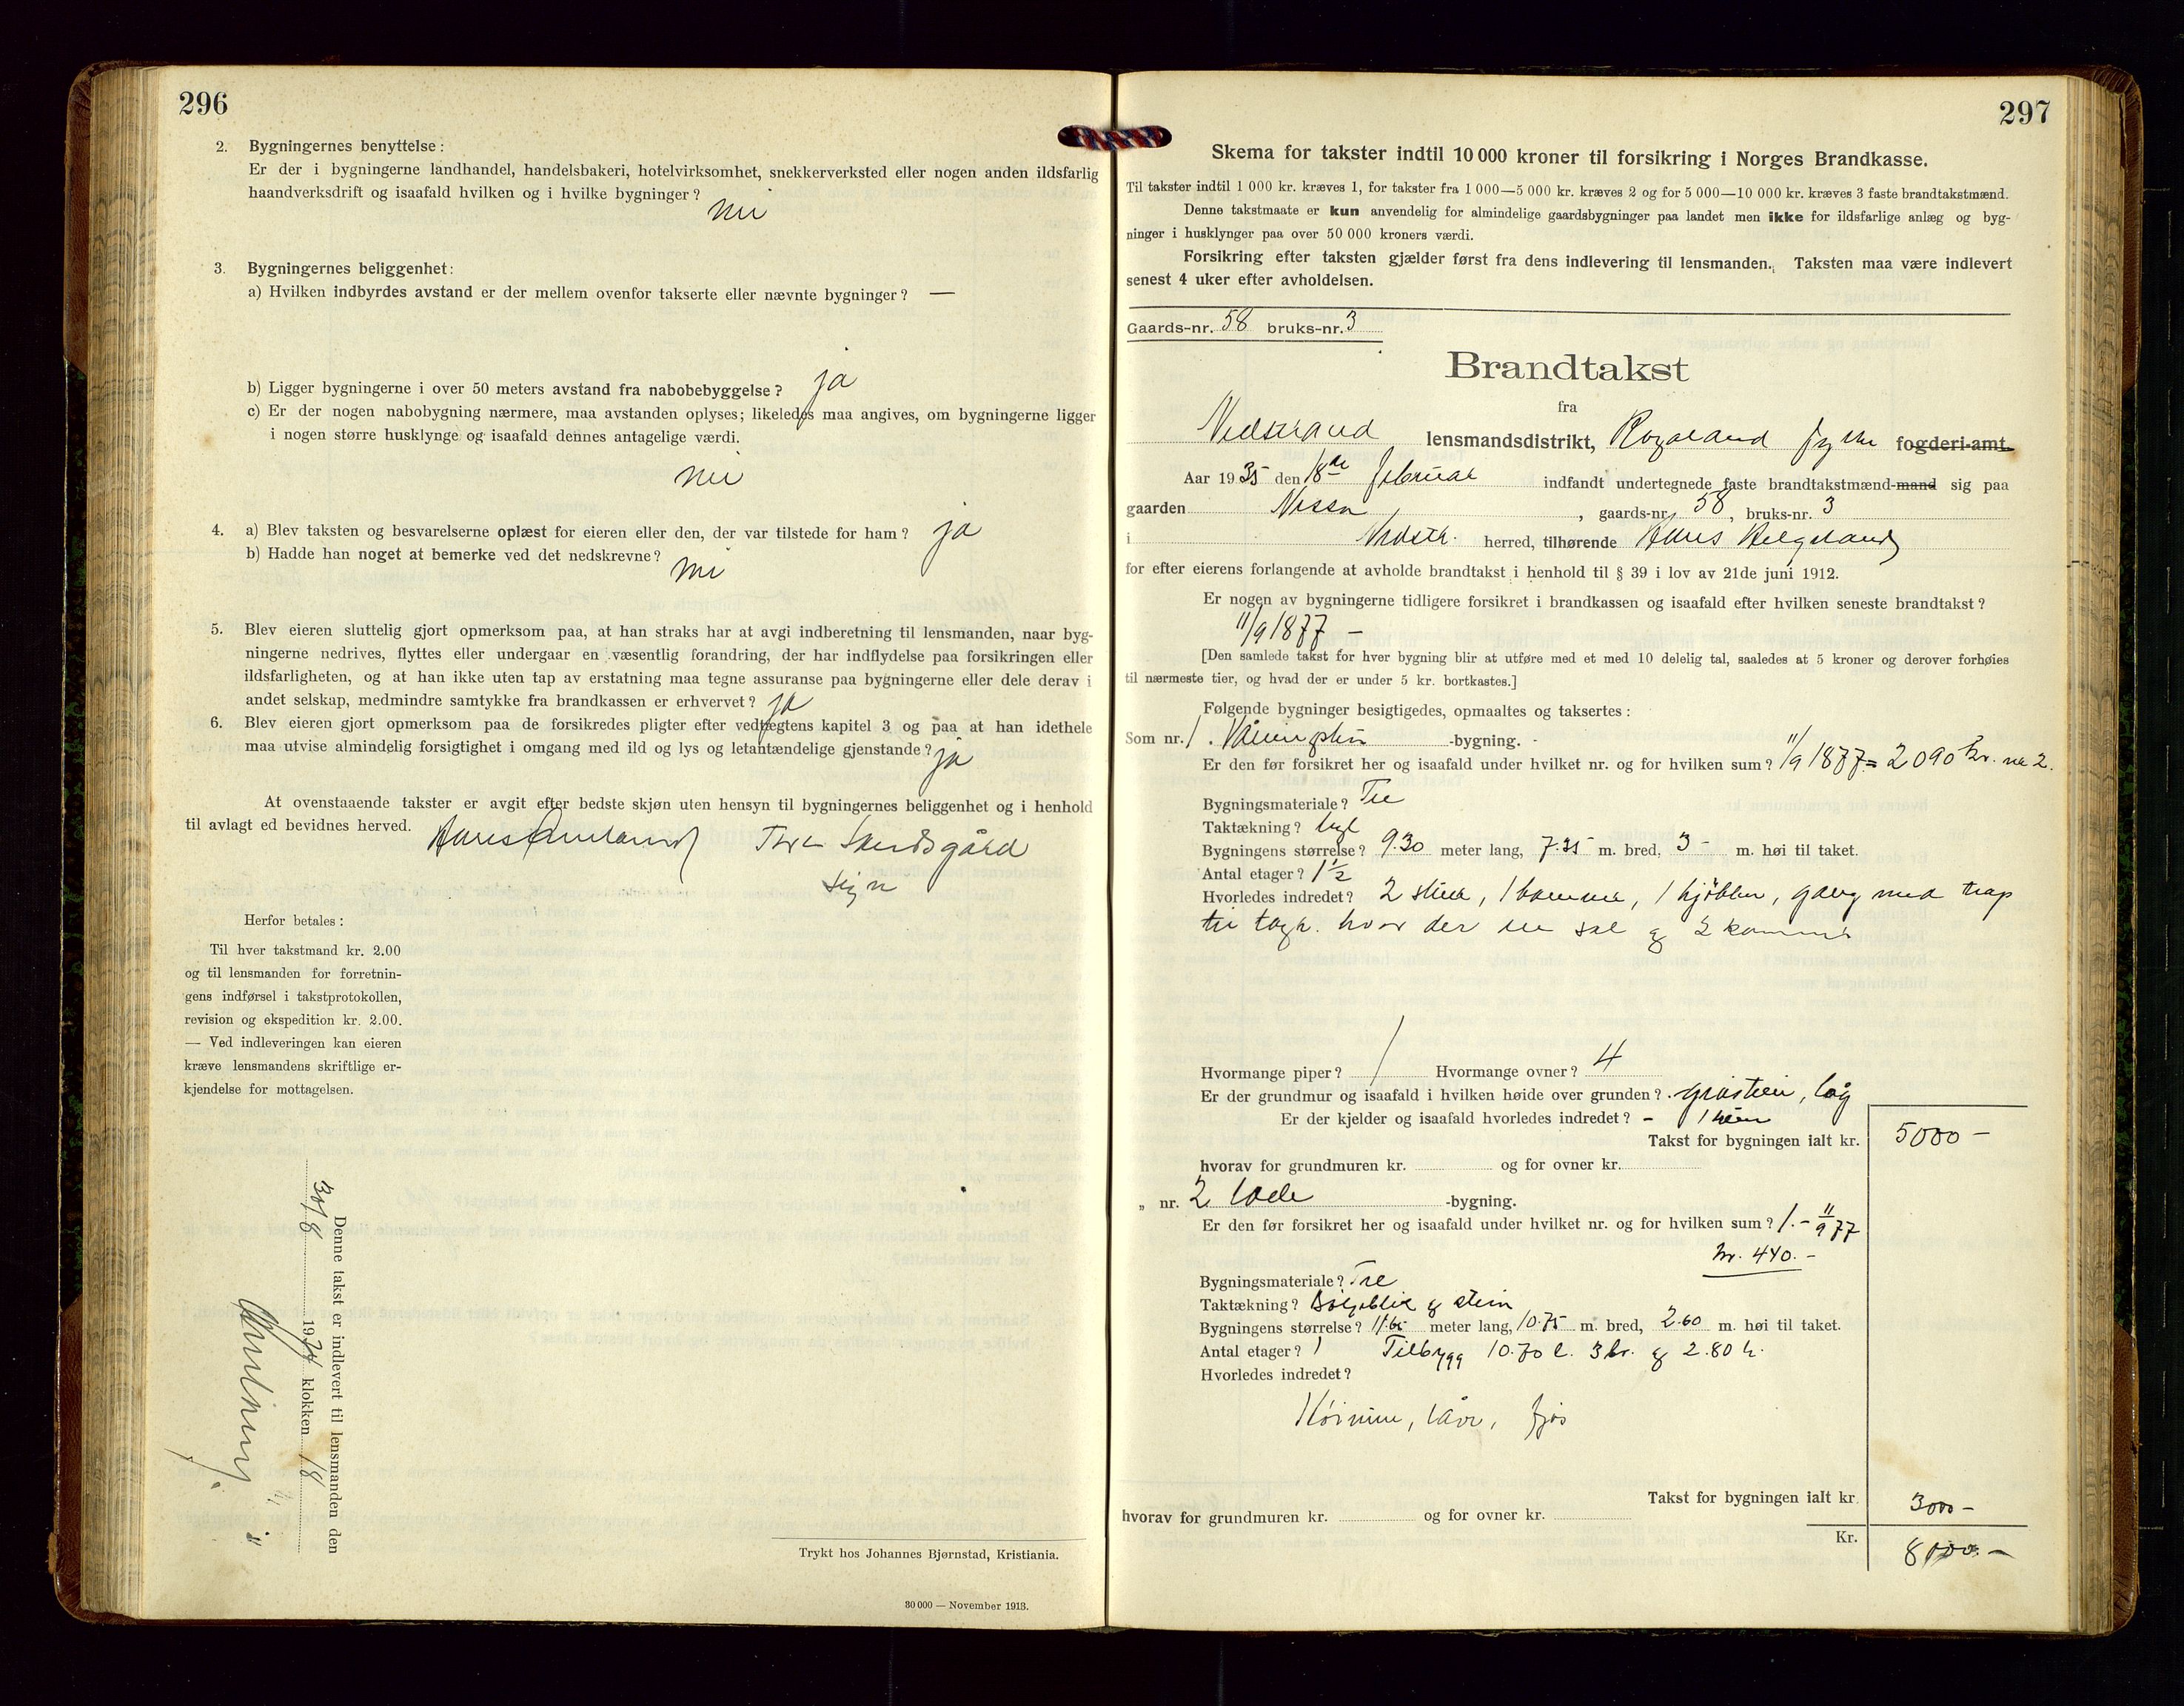 296
2. Bygningernes benyttelse:
Er der i bygningerne landhandel, handelsbakeri, hotelvirksomhet, snekkerverksted eller nogen anden ildsfarlig
haandverksdrift og isaafald hvilken og i hvilke bygninger? nei
3. Bygningernes beliggenhet:
a) Hvilken indbyrdes avstand er der mellem ovenfor takserte eller nævnte bygninger? —
b) Ligger bygningerne i over 50 meters avstand fra nabobebyggelse? ja
c) Er der nogen nabobygning nærmere, maa avstanden oplyses; likeledes maa angives, om bygningerne ligger
i nogen større husklynge og isaafald dennes antagelige værdi.
nei
4. a) Blev taksten og besvarelserne oplæst for eieren eller den, der var tilstede for ham? ja
b) Hadde han noget at bemerke ved det nedskrevne? nei
5. Blev eieren sluttelig gjort opmerksom paa, at han straks har at avgi indberetning til lensmanden, naar byg-
ningerne nedrives, flyttes eller undergaar en væsentlig forandring, der har indflydelse paa forsikringen eller
ildsfarligheten, og at han ikke uten tap av erstatning maa tegne assuranse paa bygningerne eller dele derav i
andet selskap, medmindre samtykke fra brandkassen er erhvervet? ja
6. Blev eieren gjort opmerksom paa de forsikredes pligter efter vedtægtens kapitel 3 og paa at han idethele
maa utvise almindelig forsigtighet i omgang med ild og lys og letantændelige gjenstande? ja
At ovenstaaende takster er avgit efter bedste skjøn uten hensyn til bygningernes beliggenhet og i henhold
til avlagt ed bevidnes herved. Hans Tore Sandsgård
sign
Herfor betales:
Til hver takstmand kr. 2.00
og til lensmanden for forretnin-
gens indførsel i takstprotokollen,
revision og ekspedition kr. 2.00.
— Ved indleveringen kan eieren
kræve lensmandens skriftlige er-
kjendelse for mottagelsen.
Denne takst er indlevert til lensmanden den
30/8 19 klokken 18
Trykt hos Johannes Bjørnstad, Kristiania.
30 000 — November 1913.
297
Skema for takster indtil 10 000 kroner til forsikring i Norges Brandkasse.
Til takster indtil 1 000 kr. kræves 1, for takster fra 1 000—5 000 kr. kræves 2 og for 5 000—10 000 kr. kræves 3 faste brandtakstmænd.
Denne takstmaate er kun anvendelig for almindelige gaardsbygninger paa landet men ikke for ildsfarlige anlæg og byg-
ninger i husklynger paa over 50 000 kroners værdi.
Forsikring efter taksten gjælder først fra dens indlevering til lensmanden. Taksten maa være indlevert
senest 4 uker efter avholdelsen.
Gaards-nr. 58 bruks-nr. 3
Brandtakst
fra
Nedstrand lensmandsdistrikt, Rogaland fylke fogderi-amt.
Aar 1935 den 18de februar indfandt undertegnede faste brandtakstmænd-mand sig paa
gaarden Nessa, gaards-nr. 58, bruks-nr. 3
i Nedstr. herred, tilhørende Hans Helgeland
for efter eierens forlangende at avholde brandtakst i henhold til § 39 i lov av 21de juni 1912.
Er nogen av bygningerne tidligere forsikret i brandkassen og isaafald efter hvilken seneste brandtakst?
11/9 1877 —
[Den samlede takst for hver bygning blir at utføre med et med 10 delelig tal, saaledes at 5 kroner og derover forhøies
til nærmeste tier, og hvad der er under 5 kr. bortkastes.]
Følgende bygninger besigtigedes, opmaaltes og taksertes:
Som nr. 1. Våning -bygning.
Er den før forsikret her og isaafald under hvilket nr. og for hvilken sum? 11/9 1877 = 2090 kr. nr 2.
Bygningsmateriale? Tre
Taktækning? tegl
Bygningens størrelse? 9.30 meter lang, 7.35 m. bred, 3 – m. høi til taket.
Antal etager? 1½
Hvorledes indredet? 2 stuer, 1 kammer, 1 kjøkken, gang med trap
til hvor der er sal og 2 kammer
Hvormange piper? 1 Hvormange ovner? 4
Er der grundmur og isaafald i hvilken høide over grunden? gråstein, låg
Er der kjelder og isaafald hvorledes indredet? –
Takst for bygningen ialt kr. 5000 –
hvorav for grundmuren kr. og for ovner kr.
„ nr. 2 Løde -bygning.
Er den før forsikret her og isaafald under hvilket nr. og for hvilken sum? 1. – 11/9 77
kr. 440. –
Bygningsmateriale? Tre
Taktækning? Bølgeblik og stein
Bygningens størrelse? 11.65 meter lang, 10.75 m. bred, 2.60 m. høi til taket.
Antal etager? 1 Tilbygg 10.70 l. 3 br. og 2.80 h.
Hvorledes indredet?
Høirum, låve, fjøs
Takst for bygningen ialt kr. 3000 –
hvorav for grundmuren kr. og for ovner kr.
Kr. 8000. –